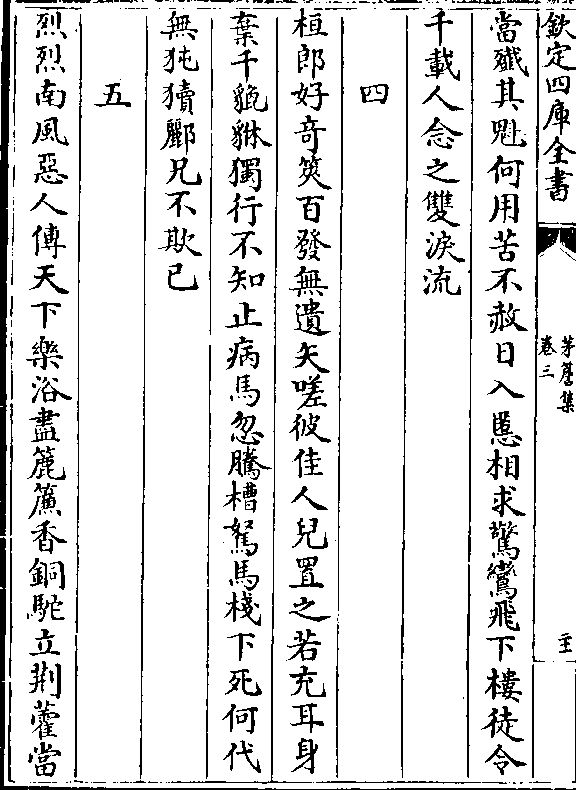 欽定四庫全書
茅簷集
卷三
當殲其魁何用苦不赦日入慝相求驚鸞飛下樓徒令
千載人念之雙淚流
四
桓郎好奇筴百發無遺矢嗟彼佳人兒置之若充耳身
棄千貔貅獨行不知止病馬忽騰槽駑馬棧下死何代
無㹠犢酈兄不欺已
五
烈烈南風惡人傳天下樂浴盡簏簾香銅駝立荆藿當